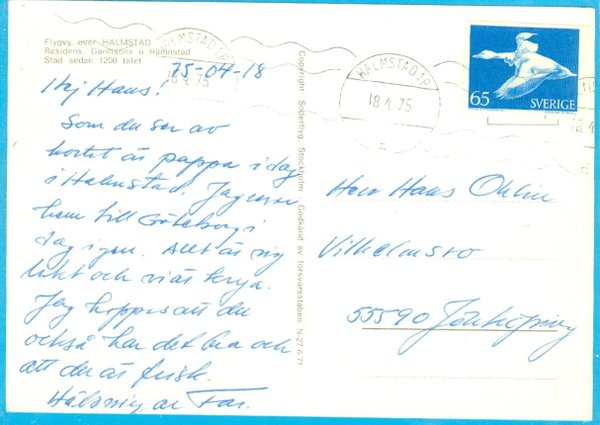 Flygvy över HALMSTAD
Residens. Garnisons o Hamnstad
Stad sedan 1200 talet
HALMSTAD 1A
18.4.75
75-04-18
Hej Hans!
Som du ser av
kortet är pappa i dag
i Halmstad. Jag reser
hem till Göteborg i
dag igen. Allt är sig
likt och vi är krya.
Jag hoppas att du
också har det bra och
att du är frisk.
Hälsning av Far.
Copyright Söderflyg, Stockholm. Godkänd av försvarsstaben N-27 6-71
HALMSTAD 1A
18.4.75
65 SVERIGE
Herr Hans Ohlin
Vilhelmsro
55590 Jönköping